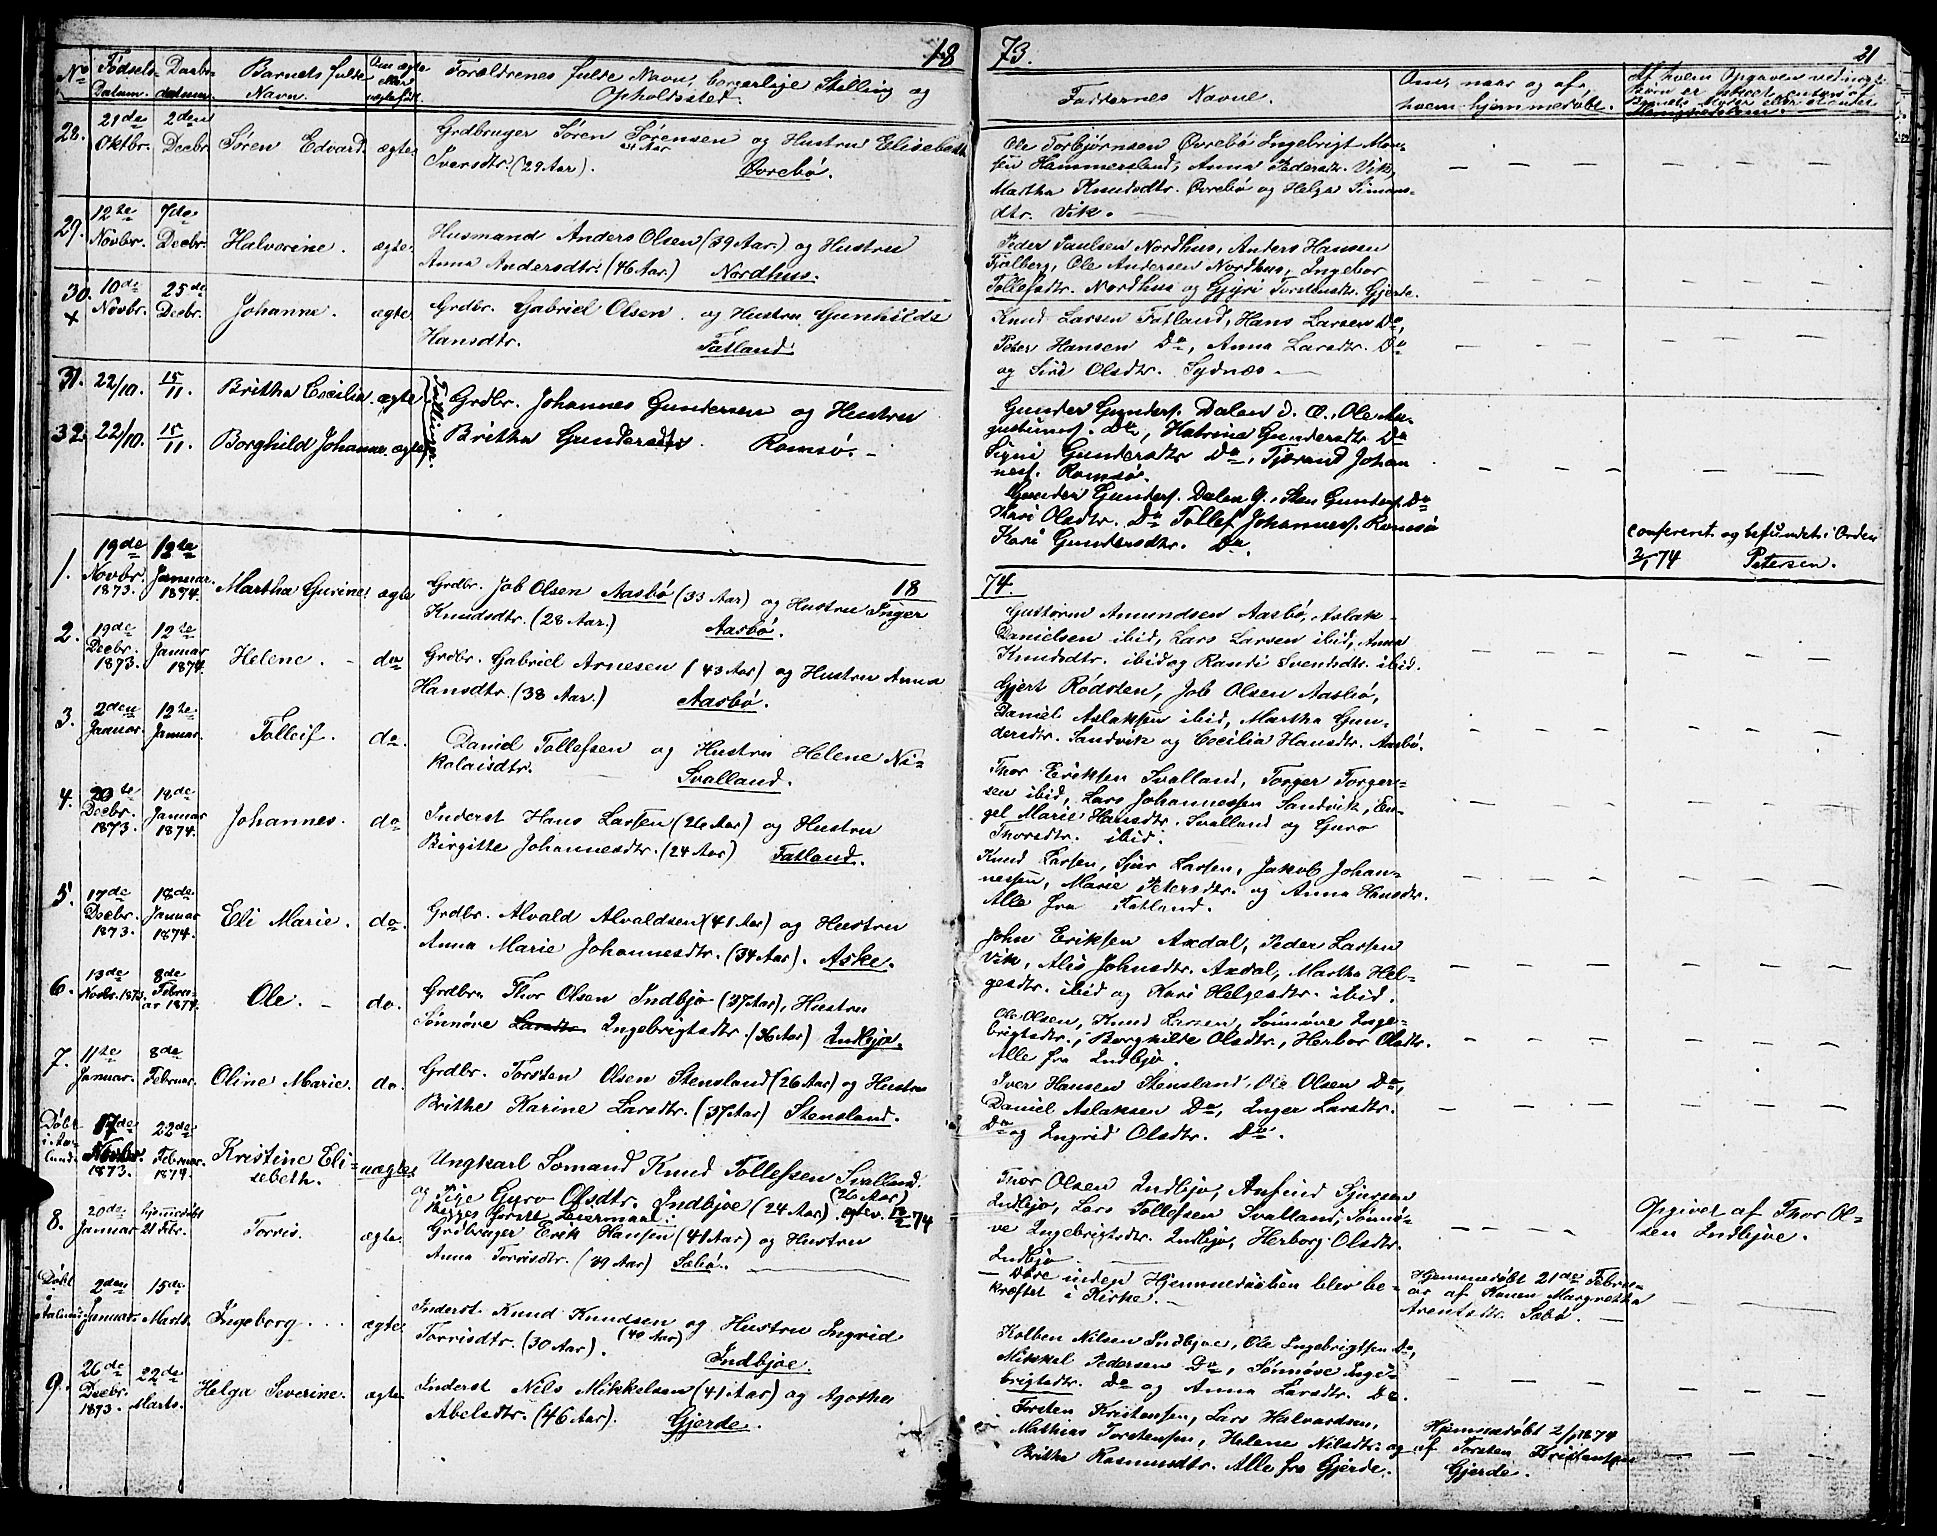 18 73. 21
No Fødsels- Datum. Daabs- datum. Barnets fulde Navn. Om ægte eller uægte født. Forældrenes fulde Navn, borgerlige Stilling og Opholdssted.
Faddernes Navne. Om, naar og af hvem hjemmedøbt.
28. 21de Oktbr. 2den Decbr. Søren Edvard ægte
Grdbruger Søren Sørensen og Hustru Elisebeth
31 Aar
Iversdtr. (29 Aar). Øvrebø.
Ole Torbjørnsen Øvrebø Ingebrigt Mon-
sen Hammersland, Anna Pedersdtr. Vik,
Martha Knudsdtr. Øvrebø og Helga Simons-
dtr. Vik.
29. 12te Novbr. 7de Decbr. Halvorine. ægte.
Husmand Anders Olsen (39 Aar.) og Hustru
Anna Andersdtr. (46 Aar.) Nordhus.
Peder Paulsen Nordhus, Anders Hansen
Fjælberg, Ole Andersen Nordhus, Ingebor
Tollefsdtr. Nordhus og Gjyri Torstensdtr. Gjerde.
30. x 10de Novbr. 25de Decbr. Johanna. ægte
Grdbr. Gabriel Olsen og Hustru Gunhilde
Hansdtr. Fatland.
Knud Larsen Fatland, Hans Larsen Do,
Peter Hansen Do, Anna Larsdtr. Do
og Siri Olsdtr. Sydnæs.
31. 22/10. 15/11. Britha Cecilia. ægte
32. 22/10. 15/11. Borghild Johanne. ægte
Tvillinger.
Grdbr. Johannes Gundersen og Hustru
Britha Gundersdtr. Romsø.
Gunder Gunders. Dalen d. Æ., Ole Au-
gustinus. Do, Katrina Gundersdtr. Do
Signi Gundersdtr. Do, Tjærand Johan
nes. Romsø.
Gunder Gunders. Dalen Y., Sten Gunders. Do
Kari Olsdtr. Do Tollef Johannes. Romsø
Kari Gundersdtr. Do.
Confereret og befundet i Orden
2/1 74 Petersen.
18 74.
1. 19de Novbr. 1873. 12te Januar. 1874. Martha Gurine. ægte
Grdbr. Job Olsen Aasbø (33 Aar) og Hustru Inger
Knudsdtr. (28 Aar.) Aasbø.
Guttorm Amundsen Aasbø, Aslak
Danielsen ibid, Lars Larsen ibid, Anna
Knudsdtr. ibid og Randi Svendsdtr. ibid.
2. 19de Decbr. 1873. 12te Januar 1874. Helene. do
Grdbr. Gabriel Arnesen (43 Aar) og Hustru Anna
Hansdtr. (38 Aar.) Aasbø.
Gjert Rødsten, Job Olsen Aasbø,
Daniel Aslaksen ibid, Martha Gun-
dersdtr. Sandvik og Cecilia Hansdtr. Aasbø.
3. 2den Januar. 12te Januar. Tolleif. do.
Daniel Tollefsen og Hustru Helene Ni-
kolaisdtr. Svalland.
Thor Eriksen Svalland, Torger Torger-
sen ibid, Lars Johannessen Sandvik, En-
gel Marie Hansdtr. Svalland og Guro
Thorsdtr. ibid.
4. 20de Decbr. 1873. 18de Januar 1874. Johannes. do
Inderst Hans Larsen (26 Aar) og Hustru
Birgitte Johannesdtr. (24 Aar) Fatland.
Knud Larsen, Sjur Larsen, Jakob Johan-
nessen, Marie Petersdtr. og Anna Hansdtr.
Alle fra Fatland.
5. 17de Decbr. 1873. 18de Januar 1874. Eli Marie. do.
Grdbr. Alvald Alvaldsen (41 Aar) og Hustru
Anna Marie Johannesdtr. (34 Aar). Aske.
John Eriksen Axdal, Peder Larsen
Vik, Alis Johnsdtr. Axdal, Martha Hel-
gesdtr. ibid og Kari Helgesdtr. ibid.
6. 13de Novbr. 1873. 8de Febru- ar 1874. Ole. do.
Grdbr. Thor Olsen Indbjo (37 Aar), Hustru
Sønnøve Larsdtr. Ingebrigtsdtr. (36 Aar) Indbjo.
Ole Olsen, Knud Larsen, Sønnøve Inge-
brigtsdtr., Borghilde Olsdtr., Herbor Olsdtr.
Alle fra Indbjo.
7. 11te Januar. 8de Februar. Oline Marie. do.
Grdbr. Torsten Olsen Stensland (26 Aar) og Hustru
Brithe Karine Larsdtr. (37 Aar) Stensland.
Iver Hansen Stensland, Ole Olsen Do,
Daniel Aslaksen Do, Inger Larsdtr.
Do og Ingrid Olsdtr. Do.
Døbt i 17de Novbr. 1873. 22de Februar. 1874. Kristine Eli- sebeth. uægte
Ungkarl Sømand Knud Tollefsen Svalland.
(26 Aar)
og Pige Guro Olsdtr. Indbjoe (24 Aar).
Begges første Leiermaal.
Thor Olsen Indbjo, Anfind Sjursen
Indbjo, Lars Tollefsen Svalland, Sønnø-
ve Ingebrigtsdtr. Indbjo, Herborg Olsdtr.
Indbjo
Opgivet af Thor Ol-
sen Indbjoe.
8. 20de Januar Hjemmedøbt 21 Febr. Torris. ægte.
Grdbruger Erik Hansen (41 Aar) og Hustru
Anna Torrisdtr. (39 Aar) Sæbø.
Døde inden Hjemmedaaben blev be-
kræftet i Kirke.
Hjemmedøbt 21de Febru-
ar af Konen Margretha
Arentsdtr. Sæbø.
Døbt i 2den Januar. 15de Marts. Ingeborg. ægte.
Inderst Knud Knudsen og Hustru Ingrid
(40 Aar)
Torrisdtr. (30 Aar). Indbjoe.
Kolben Nilsen Indbjoe, Ole Ingebrigtsen Do,
Mikkel Pedersen Do, Sønnøve Inge-
brigtsdtr. Do og Anna Larsdtr. Do.
9. 26de Decbr. 1873. 22de Marts. Helga Severine. ægte.
Inderst Nils Mikkelsen (41 Aar) og Agatha
Abelsdtr. (46 Aar). Gjerde.
Torsten Kristensen, Lars Halvardsen,
Mathias Torstensen, Helene Nilsdtr. og
Britha Rasmusdtr. Alle fra Gjerde.
Hjemmedøbt 2/1 1874
af Torsten Kristensen
Gjerde.